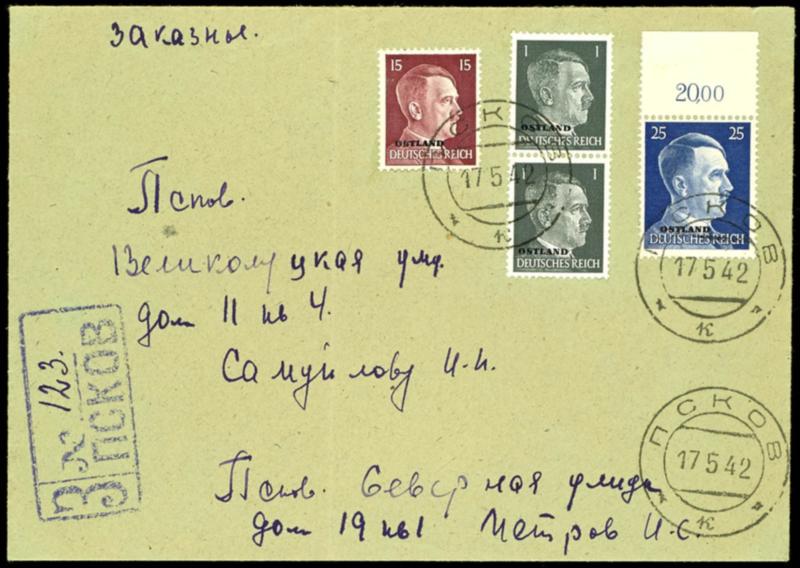 Заказное.
15 15
OSTLAND
DEUTSCHES REICH
1 1
OSTLAND
DEUTSCHES REICH
1
OSTLAND
DEUTSCHES REICH
20,00
25 25
OSTLAND
DEUTSCHES REICH
ПСКОВ
17 5 42
к
ПСКОВ
17 5 42
к
ПСКОВ
17 5 42
к
Псков.
Великолуцкая улд.
дом 11 кв 4.
Самуйлову И.И.
З № 123.
ПСКОВ
Псков. Северная улица
дом 19 кв1 Петров И.С.